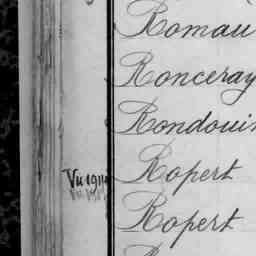 Romau
Ronceray
Rondouin
Vu 1911 Ropert
Ropert